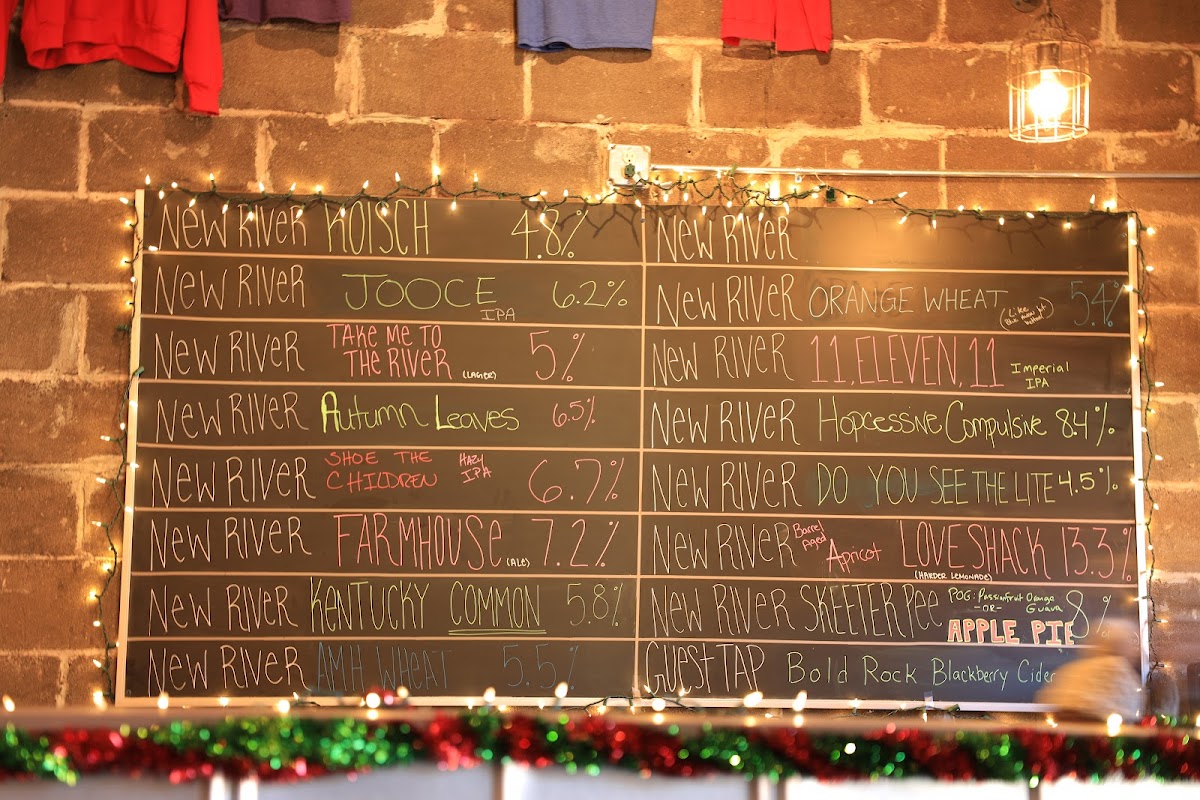 NEW RIVER KOISCH 4.8%
NEW RIVER JOOCE IPA 6.2%
NEW RIVER TAKE ME TO THE RIVER (LAGER) 5%
NEW RIVER AUTUMN LEAVES 6.5%
NEW RIVER SHOE THE CHILDREN HAZY IPA 6.7%
NEW RIVER FARMHOUSE (ALE) 7.2%
NEW RIVER KENTUCKY COMMON 5.8%
NEW RIVER AMH WHEAT 5.5%
NEW RIVER
NEW RIVER ORANGE WHEAT (Like Blue moon but better) 5.4%
NEW RIVER 11.ELEVEN.11 Imperial IPA
NEW RIVER Hopcessive Compulsive 8.4%
NEW RIVER DO YOU SEE THE LITE 4.5%
NEW RIVER Barrel Aged Apricot LOVE SHACK (HARDER LEMONADE) 13.3%
NEW RIVER SKEETER Pee POG: Passionfruit Orange Guava -OR- APPLE PIE 8%
GUEST TAP Bold Rock Blackberry Cider